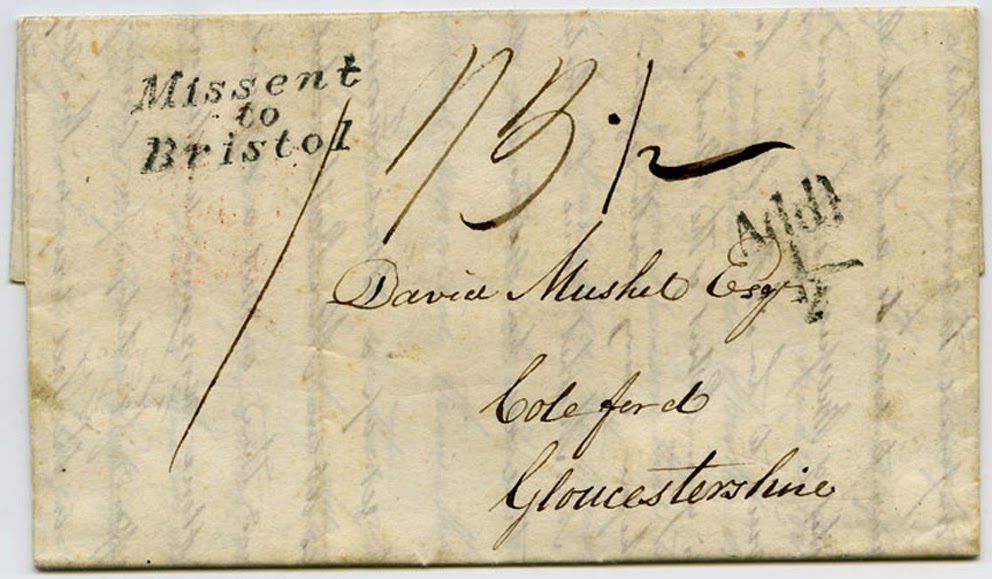 Missent
to
Bristol
1/1 3 . 1/2
Addl
1/2
David Mushet Esqr
Coleford
Gloucestershire